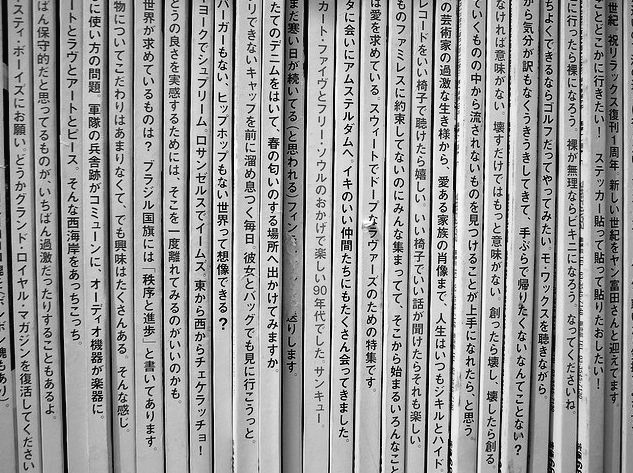 世紀 祝リラックス復刊1周年 新しい世紀をヤン富田さんと迎えてます。
ことどこかに行きたい! ステッカー貼って貼って貼りたおしたい!
に行ったら裸になろう。裸が無理ならビキニになろう。なってくださいね
ちよくできるならゴルフだってやってみたい。モ・ワックスを聴きながら。
から気分が訳もなくうきうきしてきて、手ぶらで帰りたくないなんてことない?
なければ意味がない 壊すだけではもっと意味がない。創ったら壊し、壊したら創る
ていくものの中から流されないものを見つけることが上手になれたら、と思う。
の芸術家の過激な生き様から、愛ある家族の肖像まで、人生はいつもジキルとハイド。
レコードをいい椅子で聴けたら嬉しい。いい椅子でいい話が聞けたらそれも楽しい。
ものファミレスに約束してないのにみんな集まってて、そこから始まるいろんなこと
は愛を求めている。スウィートでドープなラヴァーズのための特集です。
タに会いにアムステルダムへ。イキのいい仲間たちにもたくさん会ってきました。
カート・ファイヴとフリー・ソウルのおかげで楽しい90年代でした。サンキュー
まだ寒い日が続いてる(と思われる)フィン
ります。
たてのデニムをはいて、春の匂いのする場所へ出かけてみますか。
リできないキャップを前に溜め息つく毎日。彼女とバッグでも見に行こうっと。
バーガーもない、ヒップホップもない世界って想像できる?
ヨークでシュプリーム。ロサンゼルスでイームズ。東から西からチェケラッチョ!
どうの良さを実感するためには、そこを一度離れてみるのがいいのかも。
世界が求めているものは? ブラジル国旗には「秩序と進歩」と書いてあります。
物についてこだわりはあまりなくて、でも興味はたくさんある。そんな感じ。
に使い方の問題。軍隊の兵舎跡がコミューンに、オーディオ機器が楽器に。
トとラヴとアートとピース。そんな西海岸をあっちこっち。
ばん保守的だと思ってるものが、いちばん過激だったりすることもあるよ。
スティ・ボーイズにお願い。どうかグランド・ロイヤル・マガジンを復活してください